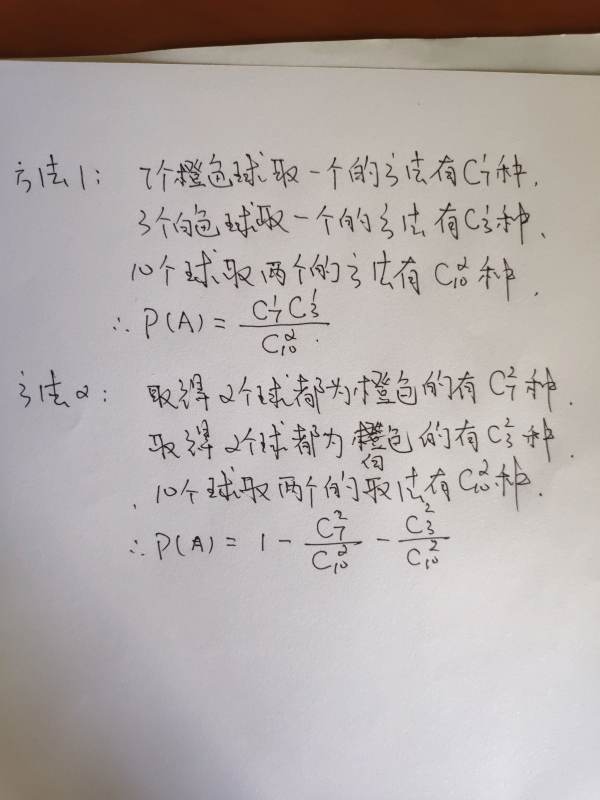 方法1: 7个橙色球取一个的方法有C₇¹种.
3个白色球取一个的方法有C₃¹种、
10个球取两个的方法有C₁₀²种.
∴ P(A) = C₇¹C₃¹ / C₁₀².
方法2: 取得2个球都为橙色的有C₇²种.
取得2个球都为白色的有C₃²种.
10个球取两个的取法有C₁₀²种.
∴ P(A) = 1 - C₇²/C₁₀² - C₃²/C₁₀²